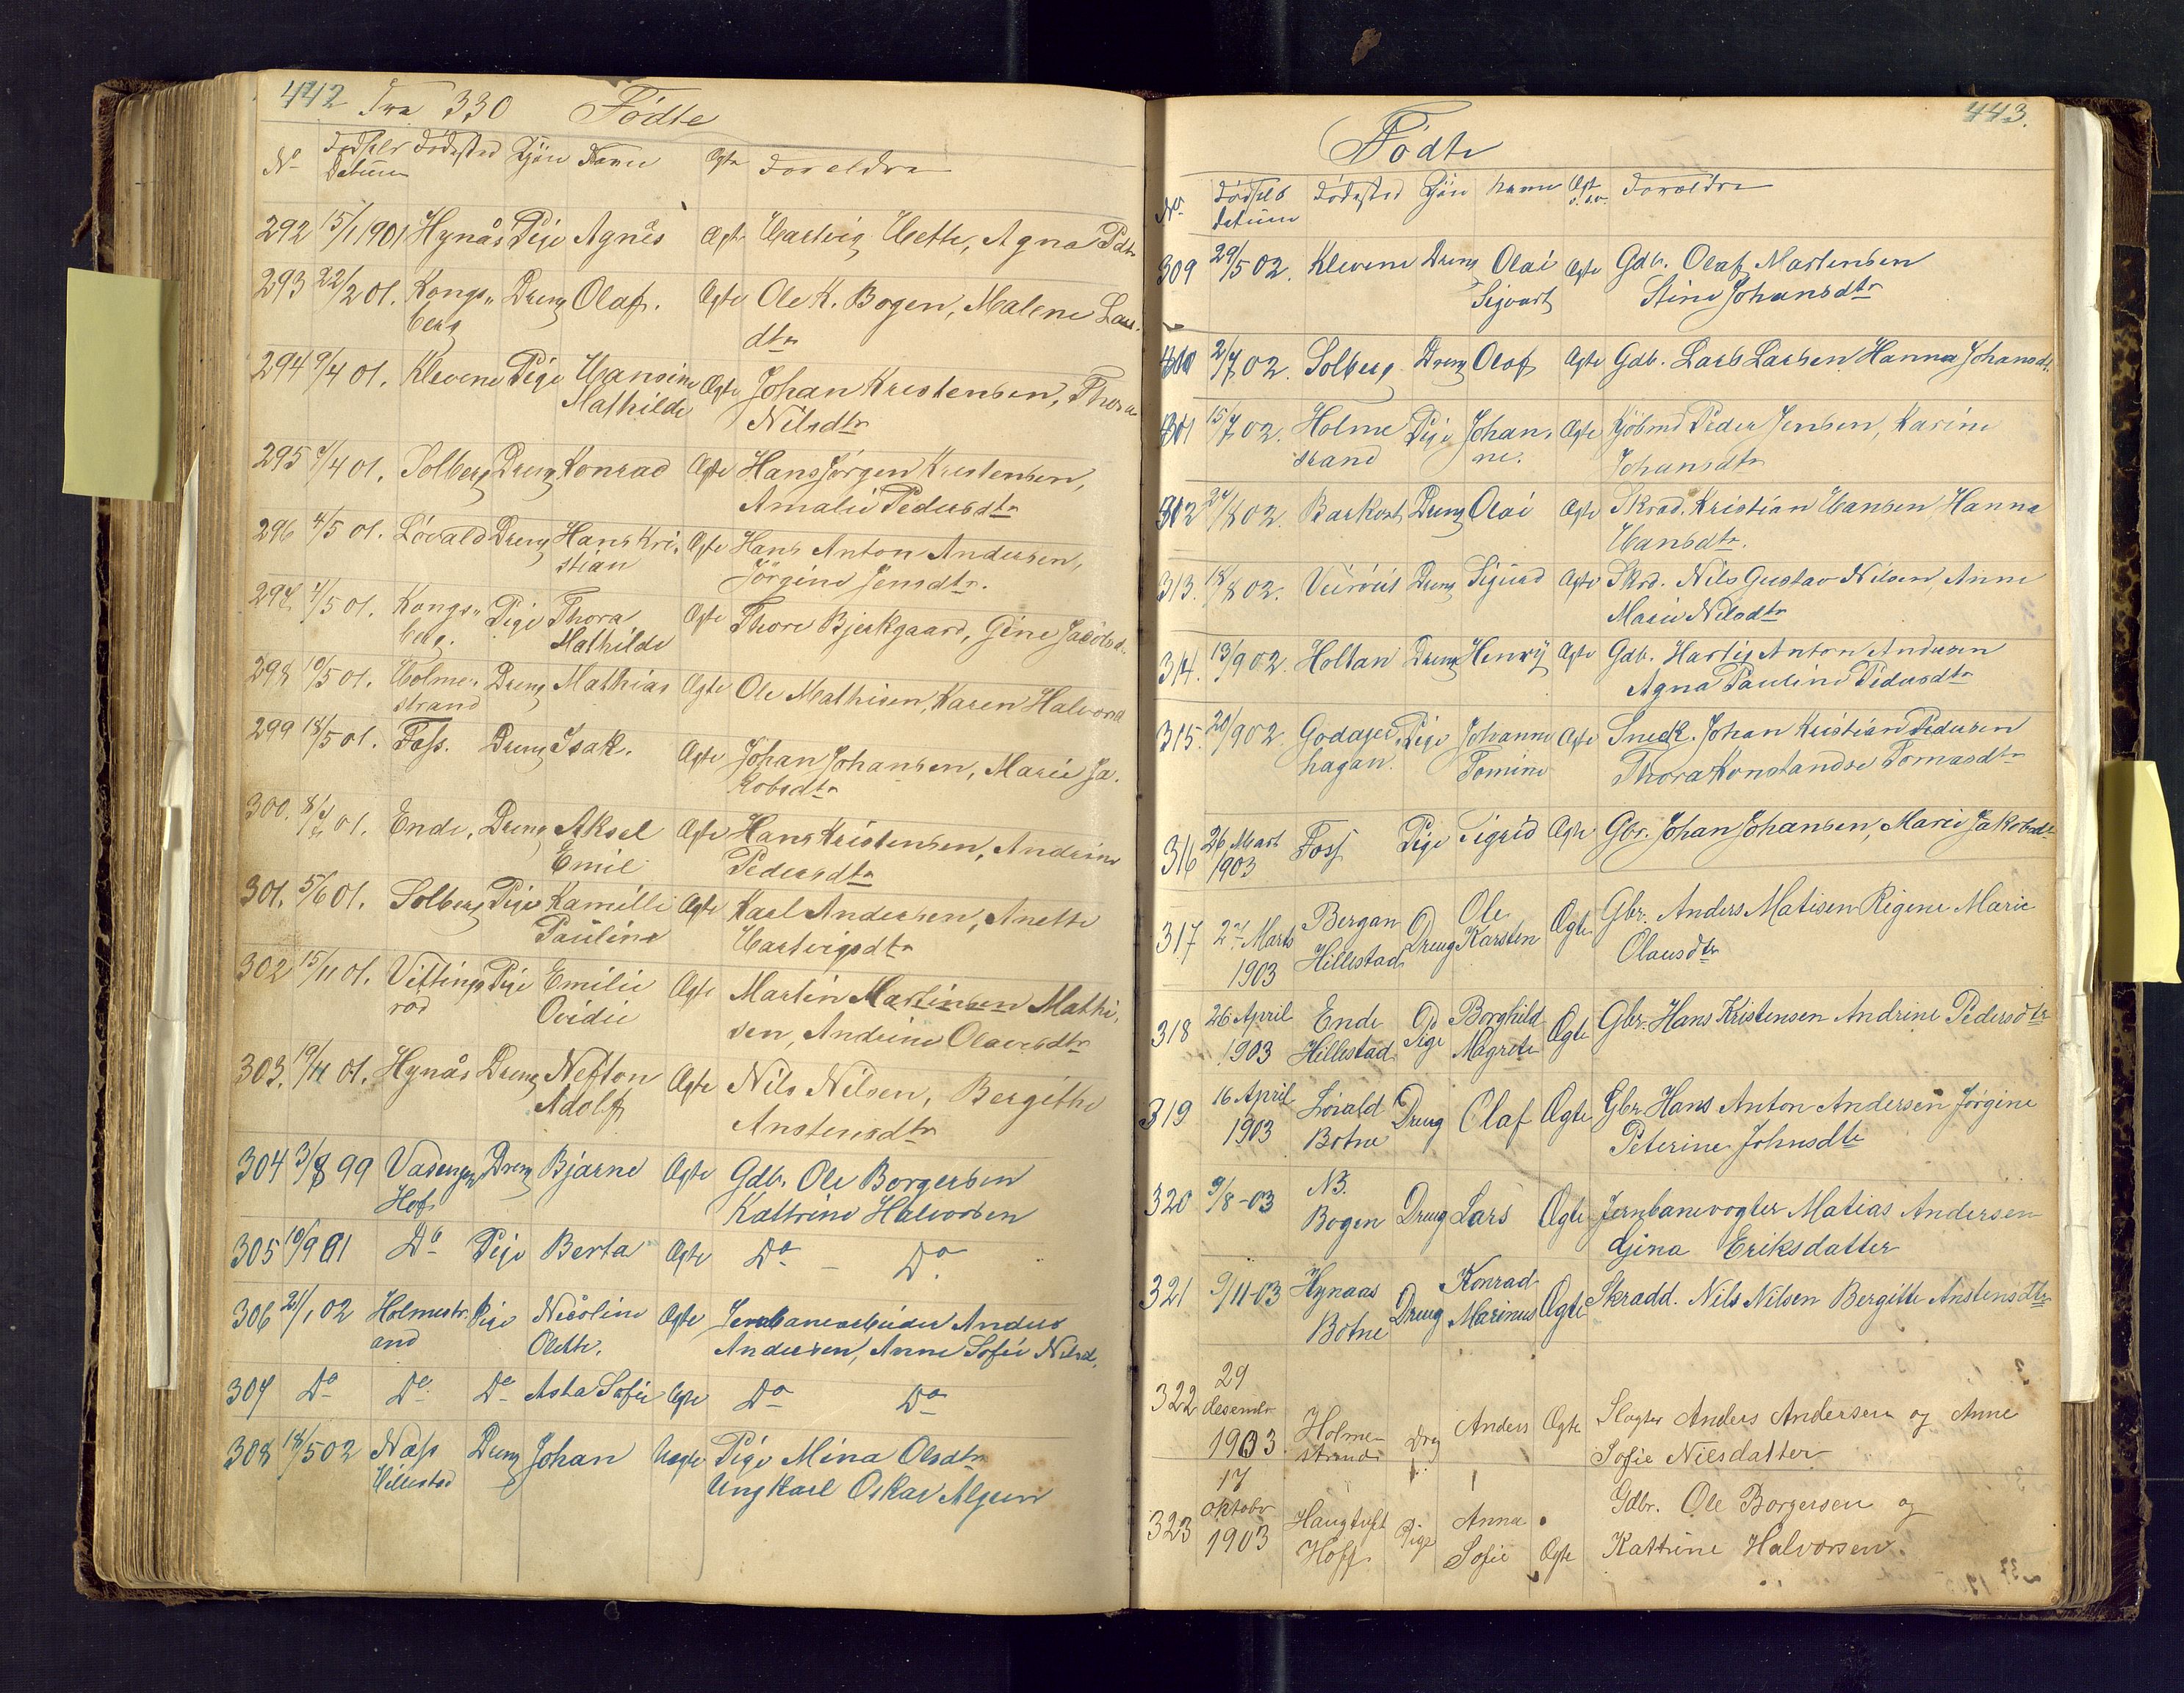 442 Fra 330 Födte
No Födsels Datum Födested Kjön Navn Ægte Foreldre
292 15/1 1901 Hynås Pige Agnes Ægte Hartvig Hette, Agna Pdtr
293 22/2 01. Kongs„ Dreng Olaf. Ægte Ole K. Bogen, Malene Lau.
berg dtr
294 9/4 01. Klevene Pige Hansine Ægte Johan Kristensen, Thora
Mathilde Nilsdtr
295 9/4 01. Solberg Dreng Konrad Ægte Hans Jörgen Kristensen,
Amalie Pedersdtr
296 4/5 01. Lövald Dreng Hans Kri. Ægte Hans Anton Andersen,
stian Jörgine Jensdtr.
297 4/5 01. Kongs„ Pige Thora Ægte Thore Bjerkgaard, Gine Jacobsd.
berg. Mathilde
298 10/5 01. Holme. Dreng Mathias Ægte Ole Mathisen, Karen Halvorsd
strand
299 18/5 01. Foss. Dreng Isak. Ægte Johan Johansen, Marie Ja.
kobsdtr
300. 8/7 01. Ende, Dreng Aksel Ægte Hans Kristensen, Andrine
Emil Pedersdtr
301. 5/6 01. Solberg Pige Kamille Ægte Karl Andersen, Anette
Pauline Hartvigsdtr
302 15/11 01. Vittings Pige Emilie Ægte Martin Martinsen Mathi.
röd Ovidie sen, Andrine Olavesdtr
303. 19/11 01. Hynås Dreng Nefton Ægte Nils Nilsen, Bergithe
Adolf Anstensdtr
304 3/8 99 Vasengen Dreng Bjarne Ægte Gdb. Ole Borgersen
Hof Kattrine Halvorsen
305 10/9 01 Do Pige Berta Ægte Do – Do.
306 21/1 02 Holmestr. Pige Nicoline Ægte Jernbanearbeider Anders
and Olette. Andersen, Anne Sofie Nilsd.
307 Do Do Do Asta Sofie Ægte Do Do
308 18/5 02 Næss Dreng Johan Uægte Pige Mina Olsdtr
Hillestad Ungkarl Oskar Algren
443.
Födte
No Födsels Datum Födested Kjön Navn Ægt. o.s.v. Foreldre
309 29/5 02. Klevene Dreng Olai Ægte Gdb. Olaf Martensen
Sigvart Stine Johansdtr
310 2/7 02. Solberg Dreng Olaf Ægte Gdb. Lars Larsen Hanna Johansdt.
311 15/7 02. Holme Pige Johan. Ægte Kjöbmd Peder Jensen, Karine
strand ne. Johansdtr
312 24/8 02. Barkost Dreng Olai Ægte Skrad. Kristian Hansen, Hanna
Hansdtr.
313. 18/8 02. Dreng Sigurd Ægte Skrd. Nils Gustav Nilsen, Anne
Marie Nilsdtr
314. 13/9 02. Holtan Dreng Henry Ægte Gdb. Hartig Anton Andersen
Agna Pauline Pedersdtr
315. 20/9 02. Godager Pige Johanne Ægte Snedk. Johan Kristian Pedersen
hagan. Tomine Thora Konstandse Tomasdtr
316 26 Mart Foss Pige Sigrid Ægte Gbr. Johan Johansen, Marie Jakobsdtr
1903
317 2 Marts Bergan Dreng Ole Ægte Gbr. Anders Matisen Regine Marie
1903 Hillestad Karsten Olausdtr
318 26 April Ende Pige Borghild Ægte Gbr. Hans Kristensen Andrine Pedersdtr
1903 Hillestad Magrete
319 16 April Lövald Dreng Olaf Ægte Gbr. Hans Anton Andersen Jörgine
1903 Botne Peterine Johnsdtr
320 9/8-03 NB. Bogen Dreng Lars Ægte Jernbanevogter Matias Andersen
Gjina Eriksdatter
321 9/11-03 Hynaas Dreng Konrad Ægte Skradd. Nils Nilsen Bergitte Anstensdtr
Botne Marinus
322 29 desembr 1903 Holme- Drg Anders Ægte Slagter Anders Andersen og Anne
strand Sofie Nilsdatter
323 17 oktobr 1903 Haugtuft Pige Anna Ægte Gdbr. Ole Borgersen og
Hoff Sofie Kattrine Halvorsen.